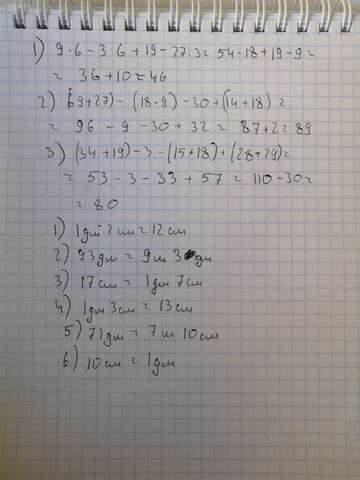 1) 9·6-3·6+19-27:3= 54-18+19-9=
= 36+10=46
2) (69+27)-(18-9)-30+(14+18)=
= 96-9-30+32= 87+2=89
3) (34+19)-3-(15+18)+(28+29)=
= 53-3-33+57= 110-30=
= 80
1) 1дм 2см=12см
2) 93дм=9м 3дм
3) 17см=1дм 7см
4) 1дм 3см=13см
5) 71дм=7м 10см
6) 10см=1дм